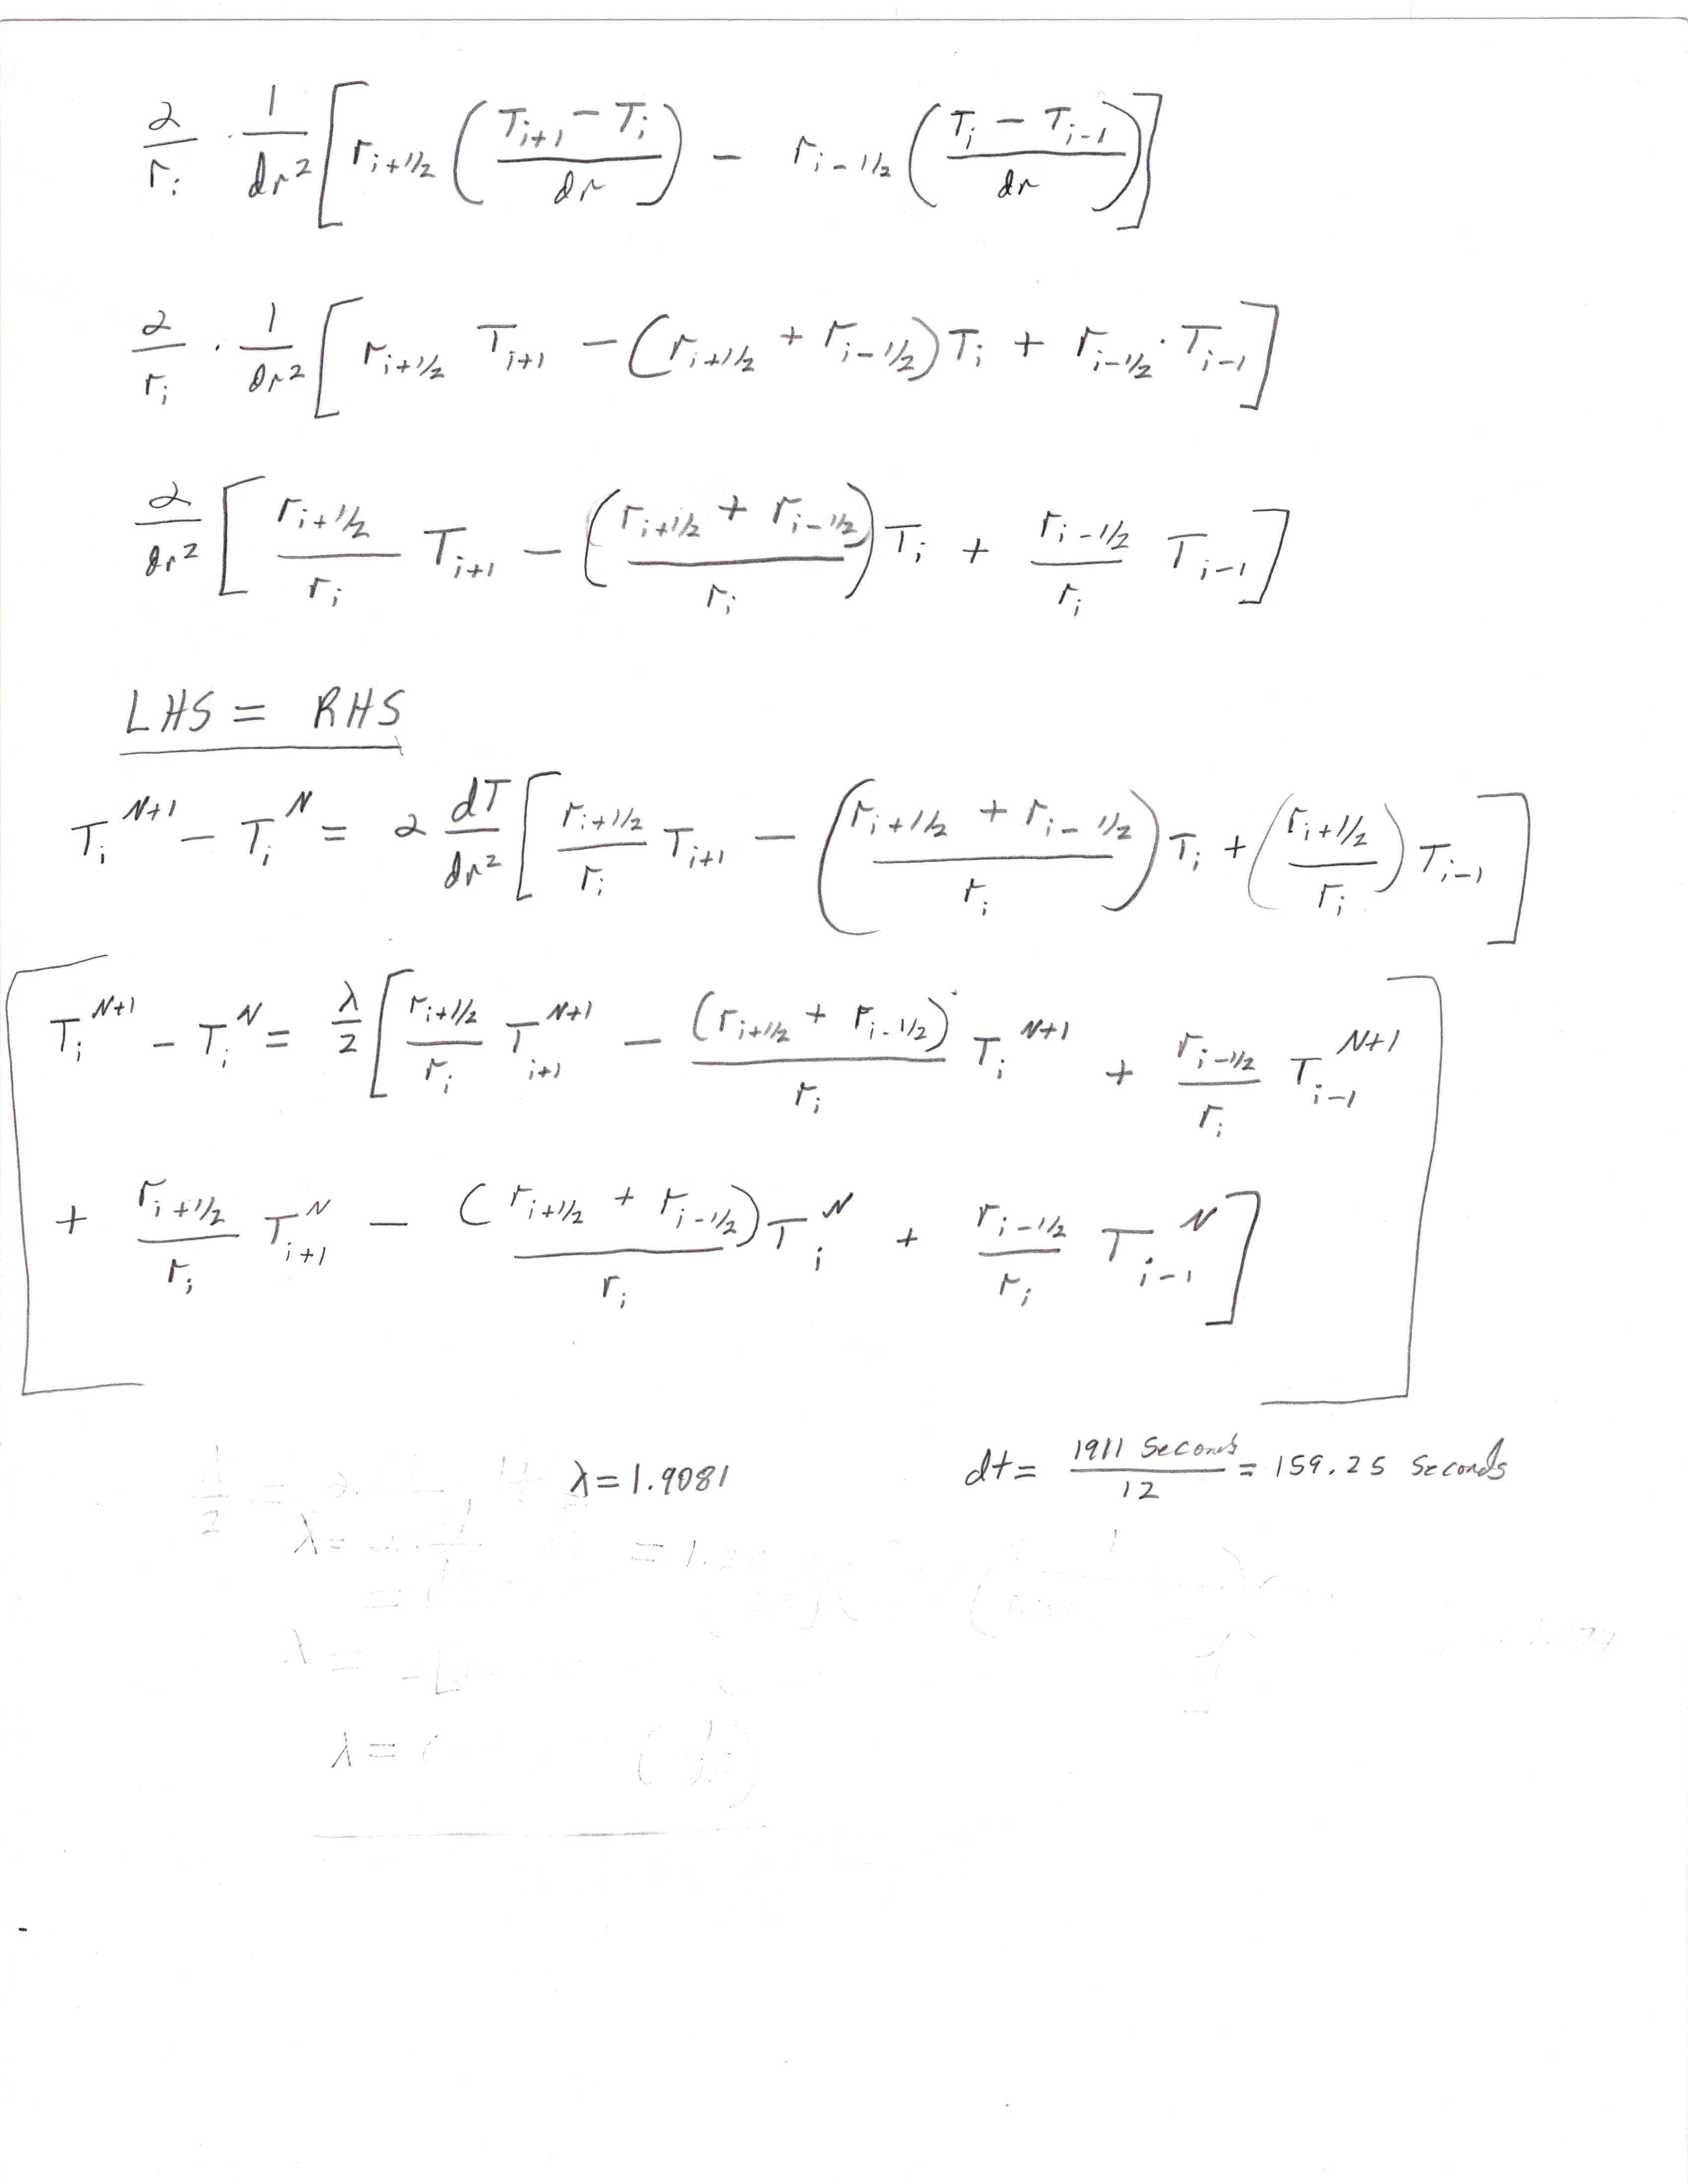 α/r_i · 1/dr² [ r_{i+1/2} ( (T_{i+1} − T_i)/dr ) − r_{i−1/2} ( (T_i − T_{i−1})/dr ) ]
α/r_i · 1/dr² [ r_{i+1/2} T_{i+1} − (r_{i+1/2} + r_{i−1/2}) T_i + r_{i−1/2} · T_{i−1} ]
α/dr² [ r_{i+1/2}/r_i T_{i+1} − ( (r_{i+1/2} + r_{i−1/2})/r_i ) T_i + r_{i−1/2}/r_i T_{i−1} ]
LHS = RHS
T_i^{N+1} − T_i^N = α dT/dr² [ r_{i+1/2}/r_i T_{i+1} − ( (r_{i+1/2} + r_{i−1/2})/r_i ) T_i + ( r_{i+1/2}/r_i ) T_{i−1} ]
T_i^{N+1} − T_i^N = λ/2 [ r_{i+1/2}/r_i T_{i+1}^{N+1} − (r_{i+1/2} + r_{i−1/2})/r_i T_i^{N+1} + r_{i−1/2}/r_i T_{i−1}^{N+1}
+ r_{i+1/2}/r_i T_{i+1}^N − (r_{i+1/2} + r_{i−1/2})/r_i T_i^N + r_{i−1/2}/r_i T_{i−1}^N ]
λ = 1.9081 dt = 1911 Seconds/12 = 159.25 Seconds